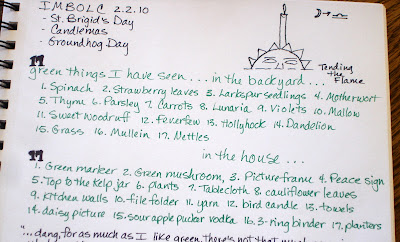 IMBOLC 2.2.10
- St. Brigid's Day
- Candlemas
- Groundhog Day
Tending
the
Flame
green things I have seen... in the backyard...
1. Spinach 2. Strawberry leaves 3. Larkspur seedlings 4. Motherwort
5. Thyme 6. Parsley 7. Carrots 8. Lunaria 9. Violets 10. Mallow
11. Sweet Woodruff 12. Feverfew 13. Hollyhock 14. Dandelion
15. Grass 16. Mullein 17. Nettles
in the house...
1. Green marker 2. Green mushroom, 3. Picture frame 4. Peace sign
5. Top to the Kelp jar 6. plants 7. Tablecloth 8. cauliflower leaves
9. kitchen walls 10. file folder 11. yarn 12. bird candle 13. towels
14. daisy picture 15. sour apple pucker vodka 16. 3-ring binder 17. planters
"...dang, for as much as I like green, there's not that much